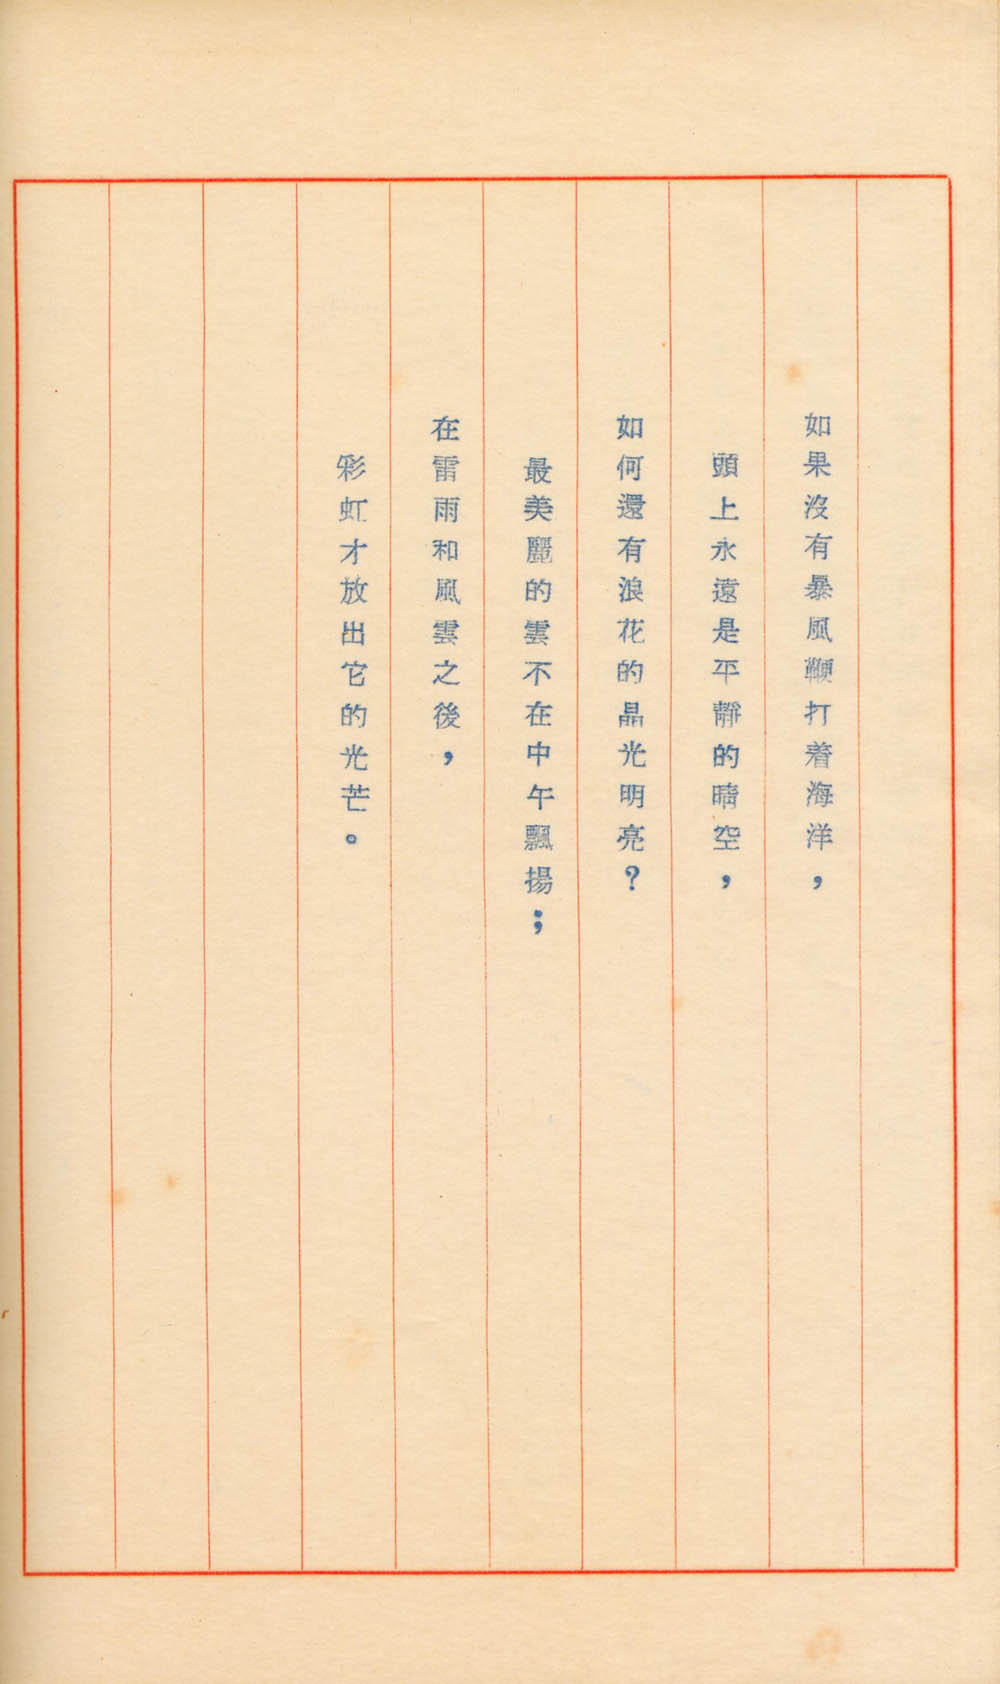 如果沒有暴風鞭打着海洋，
頭上永遠是平靜的晴空，
如何還有浪花的晶光明亮？
最美麗的雲不在中午飄揚；
在雷雨和風雲之後，
彩虹才放出它的光芒。